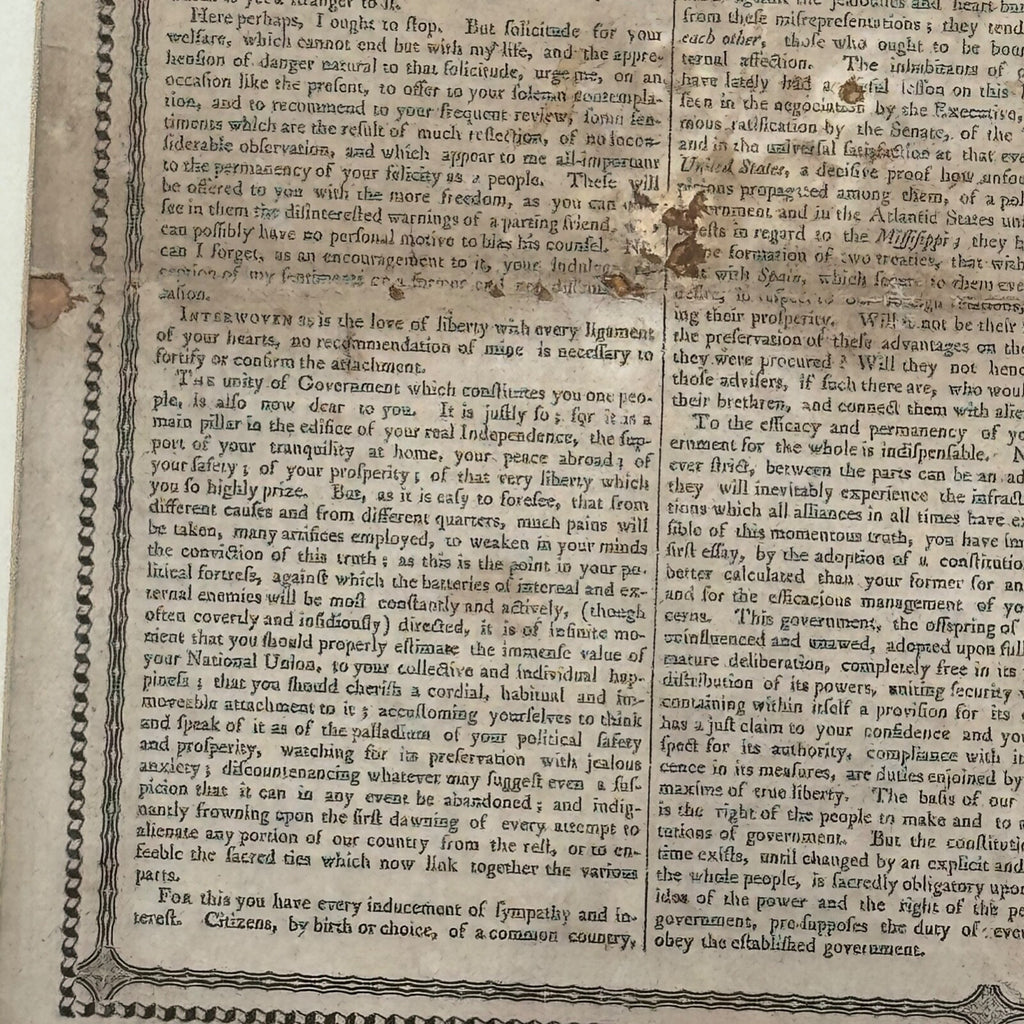 Here perhaps, I ought to ſtop. But ſolicitude for your
welfare, which cannot end but with my life, and the appre-
henſion of danger natural to that ſolicitude, urge me, on an
occaſion like the preſent, to offer to your ſolemn contempla-
tion, and to recommend to your frequent review, ſome ſen-
timents which are the reſult of much reflection, of no incon-
ſiderable obſervation, and which appear to me all-important
to the permanency of your felicity as a people. Theſe will
be offered to you with the more freedom, as you can
ſee in them the diſintereſted warnings of a parting friend,
can poſſibly have no perſonal motive to bias his counſel.
can I forget, as an encouragement to it, your indulgent
ception of my ſentiments on a former and not diſſim
caſion.
INTERWOVEN as is the love of liberty with every ligament
of your hearts, no recommendation of mine is neceſſary to
fortify or confirm the attachment.
THE unity of Government which conſtitutes you one peo-
ple, is alſo now dear to you. It is juſtly ſo; for it is a
main pillar in the edifice of your real Independence, the ſup-
port of your tranquility at home, your peace abroad; of
your ſafety; of your proſperity; of that very liberty which
you ſo highly prize. But, as it is eaſy to foreſee, that from
different cauſes and from different quarters, much pains will
be taken, many artifices employed, to weaken in your minds
the conviction of this truth; as this is the point in your po-
litical fortreſs, againſt which the batteries of internal and ex-
ternal enemies will be moſt conſtantly and actively, (though
often covertly and inſidiouſly) directed, it is of infinite mo-
ment that you ſhould properly eſtimate the immenſe value of
your National Union, to your collective and individual hap-
pineſs; that you ſhould cheriſh a cordial, habitual and im-
moveable attachment to it; accuſtoming yourſelves to think
and ſpeak of it as of the palladium of your political ſafety
and proſperity, watching for its preſervation with jealous
anxiety; diſcountenancing whatever may ſuggeſt even a ſuſ-
picion that it can in any event be abandoned; and indig-
nantly frowning upon the firſt dawning of every attempt to
alienate any portion of our country from the reſt, or to en-
feeble the ſacred ties which now link together the various
parts.
For this you have every inducement of ſympathy and in-
tereſt. Citizens, by birth or choice, of a common country,
againſt the jealouſies and heart-bur
from theſe miſrepreſentations; they tend
each other, thoſe who ought to be boun
ternal affection. The inhabitants of
have lately had a ſeful leſſon on this
ſeen in the negociation by the Executive,
mous ratification by the Senate, of the
and in the univerſal ſatisfaction at that eve
United States, a deciſive proof how unfou
picions propagated among them, of a pol
ernment and in the Atlantic States un
reſts in regard to the Miſſiſſippi; they h
he formation of two treaties, that with
at with Spain, which ſecure to them eve
deſire, in reſpect to our foreign relations,
ing their proſperity. Will it not be their
the preſervation of theſe advantages on the
they were procured? Will they not henc
thoſe adviſers, if ſuch there are, who woul
their brethren, and connect them with alie
To the efficacy and permanency of yo
ernment for the whole is indiſpenſable. N
ever ſtrict, between the parts can be an ad
they will inevitably experience the infract
tions which all alliances in all times have ex
ſible of this momentous truth, you have im
firſt eſſay, by the adoption of a conſtitutio
better calculated than your former for an
and for the efficacious management of yo
cerns. This government, the offspring of
uninfluenced and unawed, adopted upon full
mature deliberation, completely free in its
diſtribution of its powers, uniting ſecurity
containing within itſelf a proviſion for its
has a juſt claim to your confidence and you
ſpect for its authority, compliance with it
cence in its meaſures, are duties enjoined by
maxims of true liberty. The baſis of our
is the right of the people to make and to
tutions of government. But the conſtituti
time exiſts, until changed by an explicit and
the whole people, is ſacredly obligatory upon
idea of the power and the right of the pe
government, pre-ſuppoſes the duty of eve
obey the eſtabliſhed government.